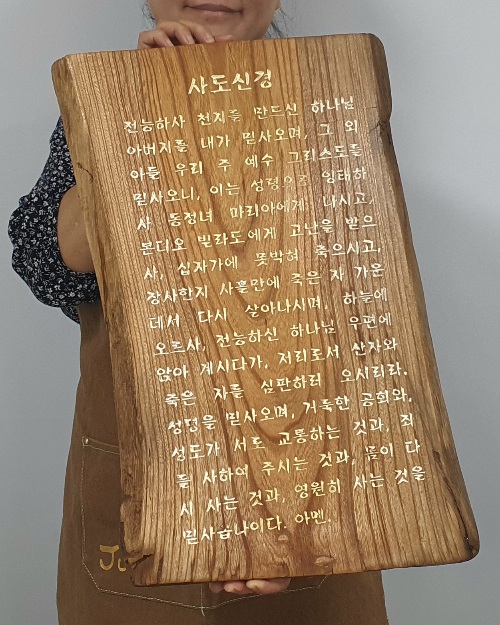 사도신경
전능하사 천지를 만드신 하나님
아버지를 내가 믿사오며, 그 외
아들 우리 주 예수 그리스도를
믿사오니, 이는 성령으로 잉태하
사 동정녀 마리아에게 나시고,
본디오 빌라도에게 고난을 받으
사, 십자가에 못박혀 죽으시고,
장사한지 사흘만에 죽은 자 가운
데서 다시 살아나시며, 하늘에
오르사, 전능하신 하나님 우편에
앉아 계시다가, 저리로서 산자와
죽은 자를 심판하러 오시리라.
성령을 믿사오며, 거룩한 공회와,
성도가 서로 교통하는 것과, 죄
를 사하여 주시는 것과, 몸이 다
시 사는 것과, 영원히 사는 것을
믿사옵나이다. 아멘.
Ju